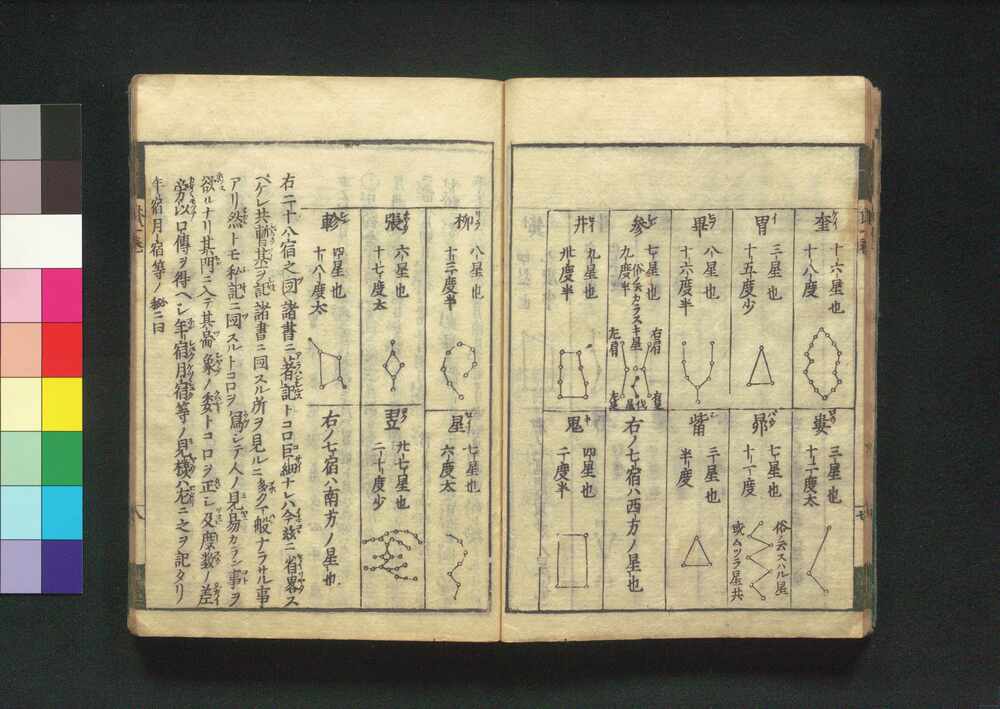 奎 十六星也
十八度
婁 三星也
十二度太
胃 三星也
十五度少
昴 七星也
十一度
俗ニ云スハル星
或ムツラ星共
畢 八星也
十六度半
觜 三星也
半度
参 七星也
俗ニ云カラスキ星
九度半
右肩
左肩
右足
左足
伐
右ノ七宿ハ西方ノ星也
井 九星也
卅度半
鬼 四星也
二度半
柳 八星也
十三度半
星 七星也
六度太
張 六星也
十七度太
翌 廿七星也
二十度少
軫 四星也
十八度太
右ノ七宿ハ南方ノ星也
右二十八宿之図諸書ニ著記トコロ巨細ナレハ今茲ニ省畧ス
ベケレ共暫其ヲ記諸書ニ図スル所ヲ見ルニ多クハ一般ナラサル事
アリ然トモ私記ニ図スルトコロヲ寫シテ人ノ見易カラン事ヲ
欲ルナリ其門ニ入テ其象ノ委トコロヲ正シ及度数ノ差
旁以口傳ヲ得ヘシ年宿月宿等ノ見様ハ左ニ之ヲ記タリ
年宿月宿等ノ秘ニ曰